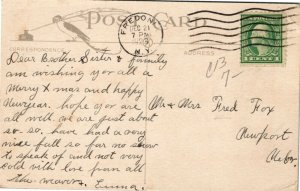 POST CARD
CORRESPONDENCE
ADDRESS
FREDONIA
DEC 21
7 PM
N.Y.
Dear Brother Sister & family
am wishing you all a
Merry Xmas and happy
Newyear. hope you are
all well. we are just about
so so. have had a very
nice fall so far no snow
to speak of and not very
cold with love from all
the weavers, Emma.
Mr & Mrs Fred Fox
Newport
Nebr